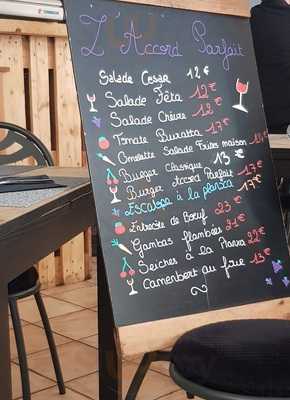 L'Accord Parfait
Salade Cesar 12 €
Salade Fêta 12 €
Salade Chèvre 12 €
Tomate Buratta 17 €
Omelette Salade Frites maison 12 €
Burger Classique 13 €
Burger Accord Parfait 17 €
Escalope à la plancza 17 €
Entrecôte de Boeuf 23 €
Gambas flambées 21 €
Seiches à la Planxa 22 €
Camembert au four 13 €